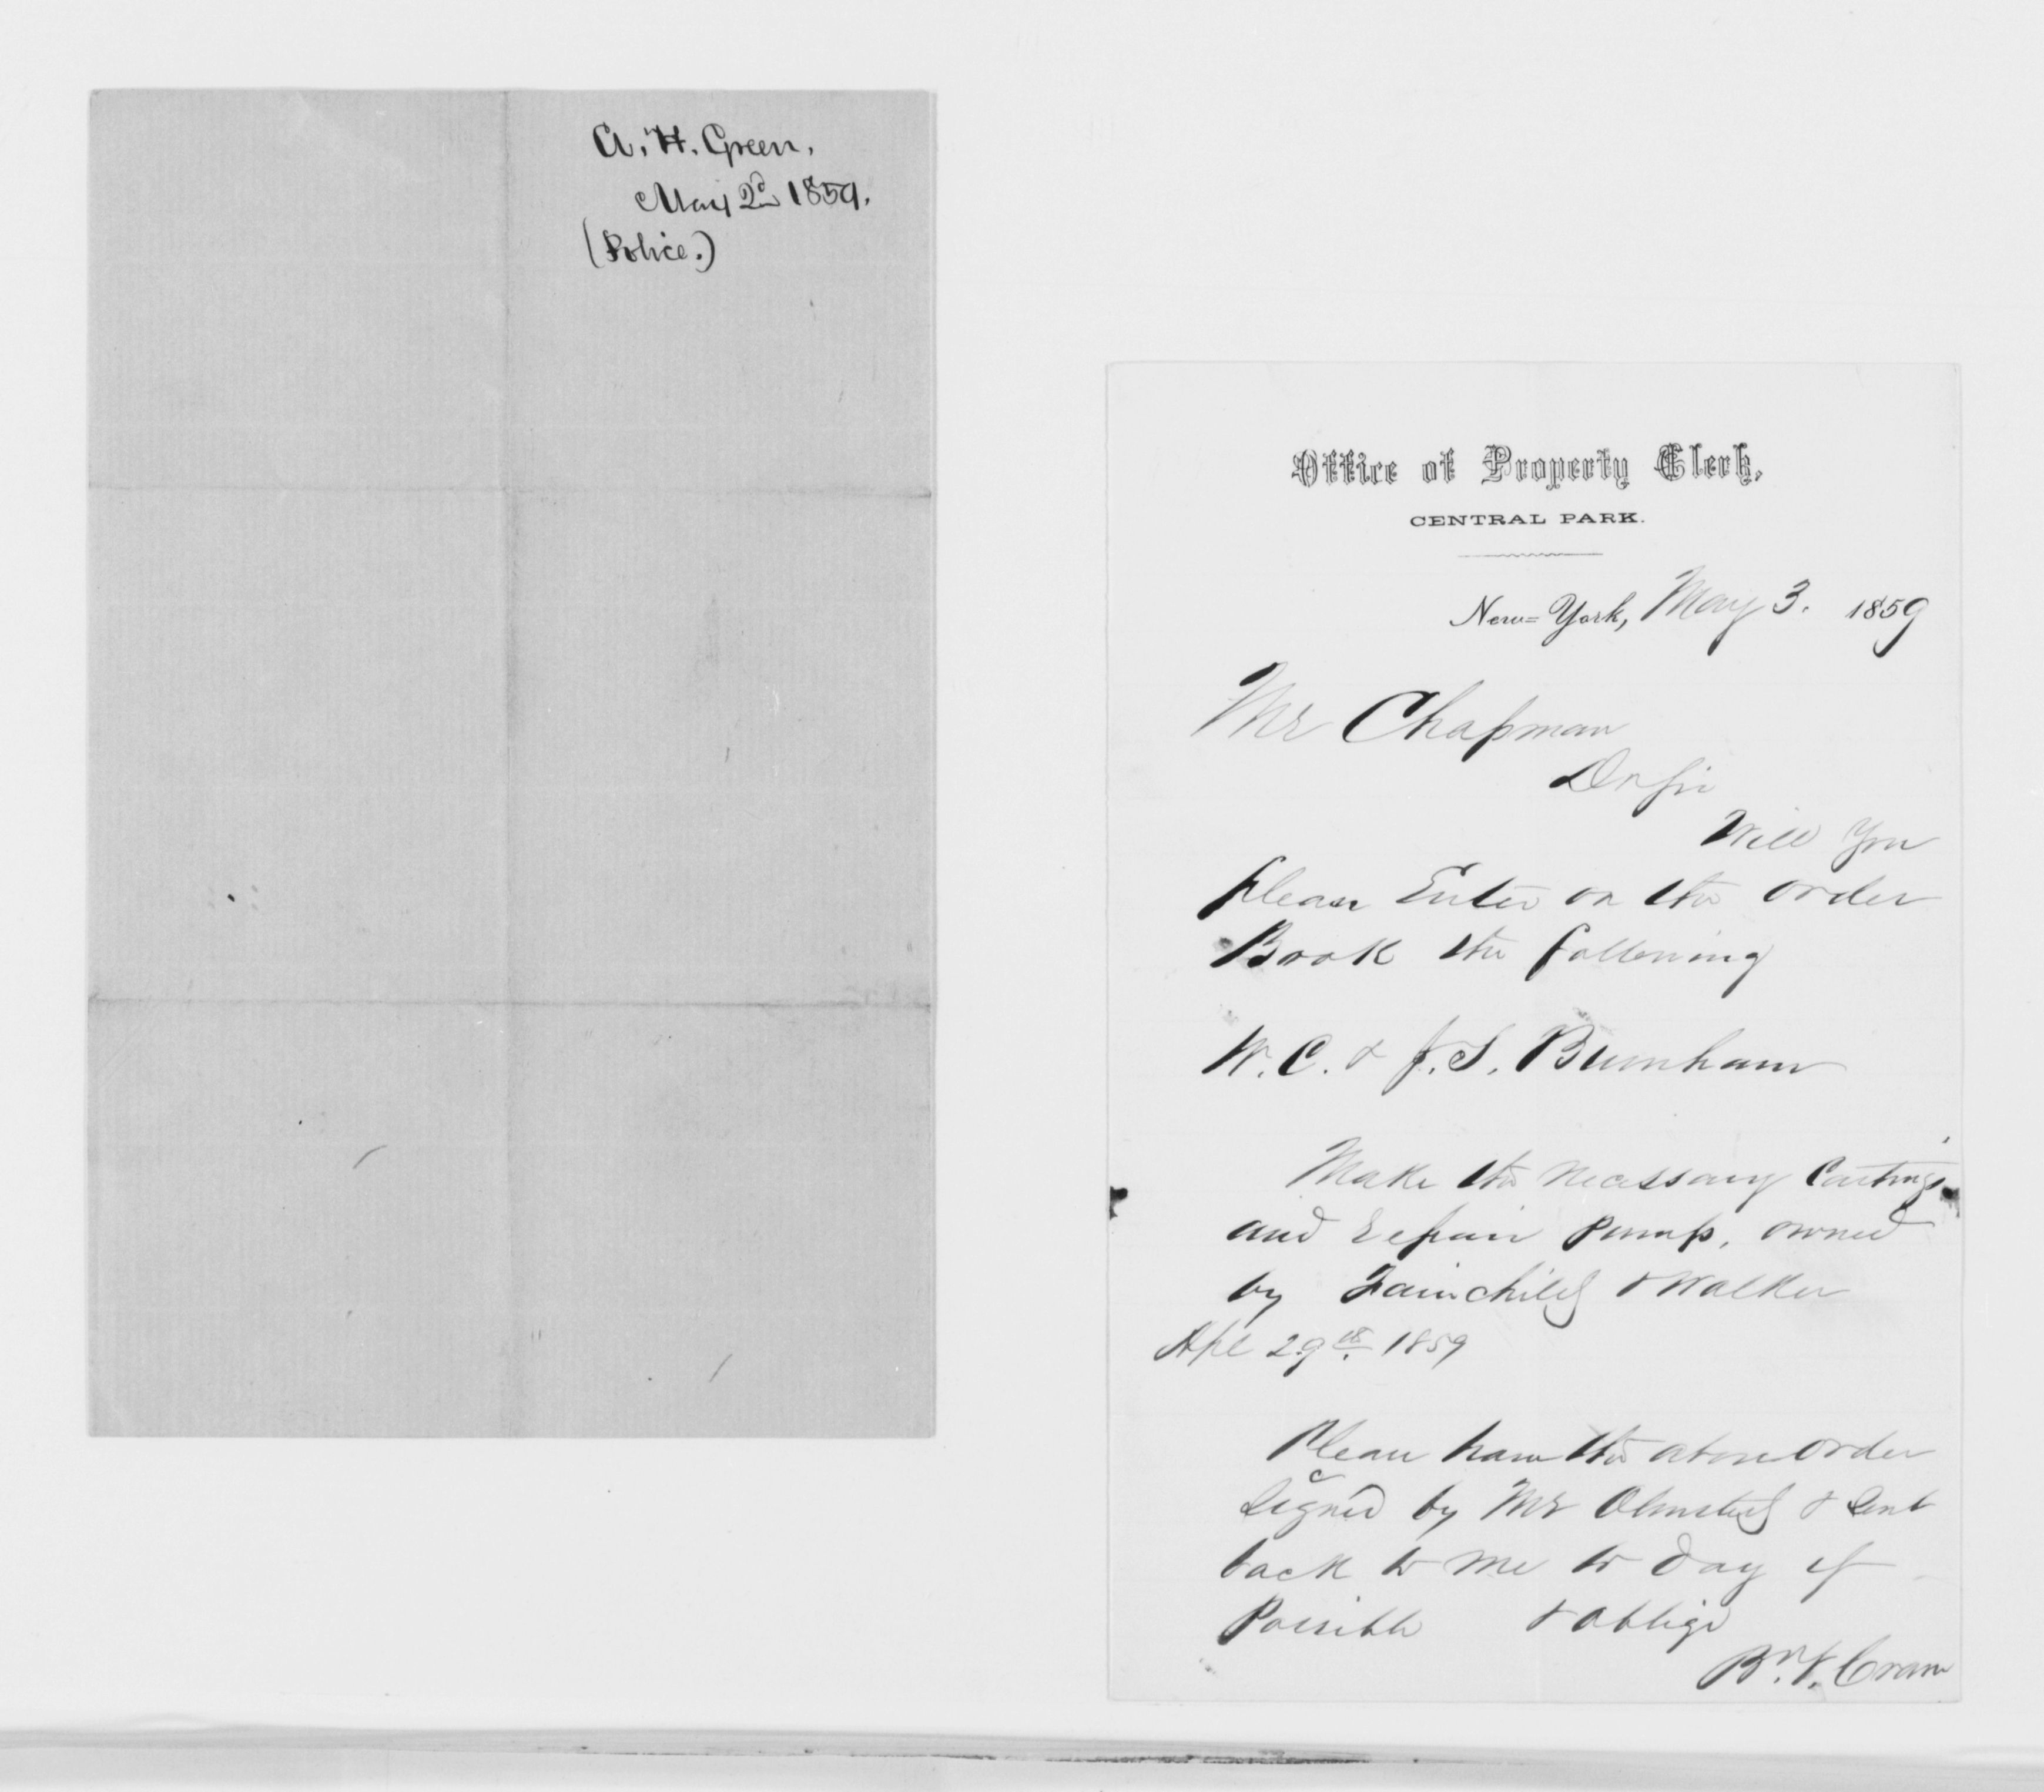 A. H. Green.
May 2d 1859.
(Police.)
Office of Property Clerk,
CENTRAL PARK.
New-York, May 3. 1859
Mr Chapman
Dr Sir
Will you
please Enter on the order
Book the following
W. C. & J. S. Burnham
Make the necessary Castings
and repair Pump, owned
by Fairchild & Walker
Apl 29th 1859
Please have the above order
Signed by Mr Olmsted & sent
back to me to day if
Possible & oblige
Cram